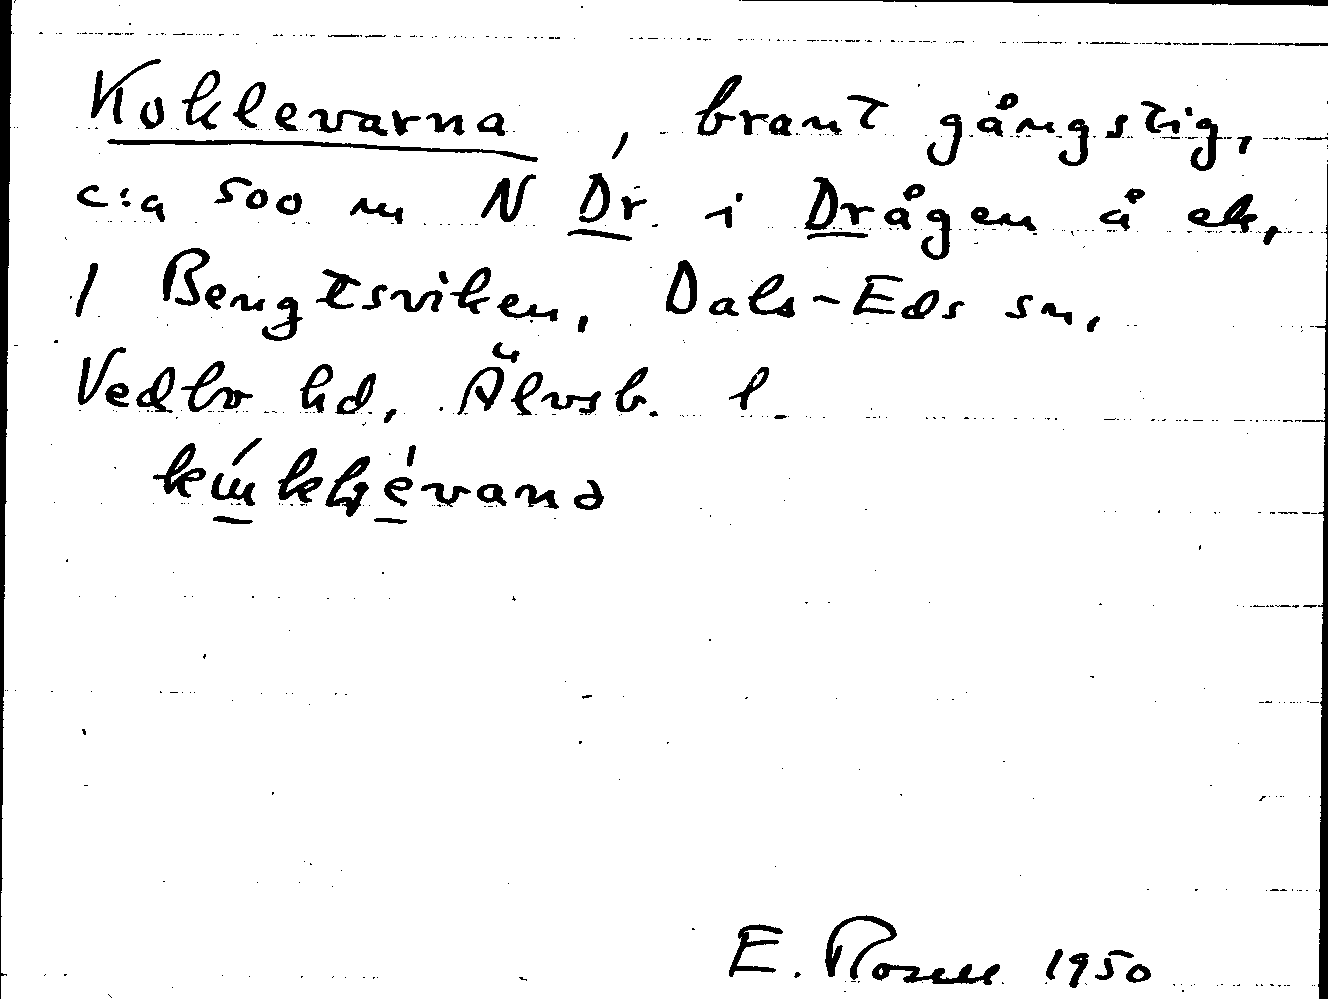 Koklevarna, brant gångstig,
c:a 500 m N Dr i Drågen å ek,
/ Bengtsviken, Dals-Eds sn,
Vedbo hd, Älvsb. l.
E. Rosell 1950